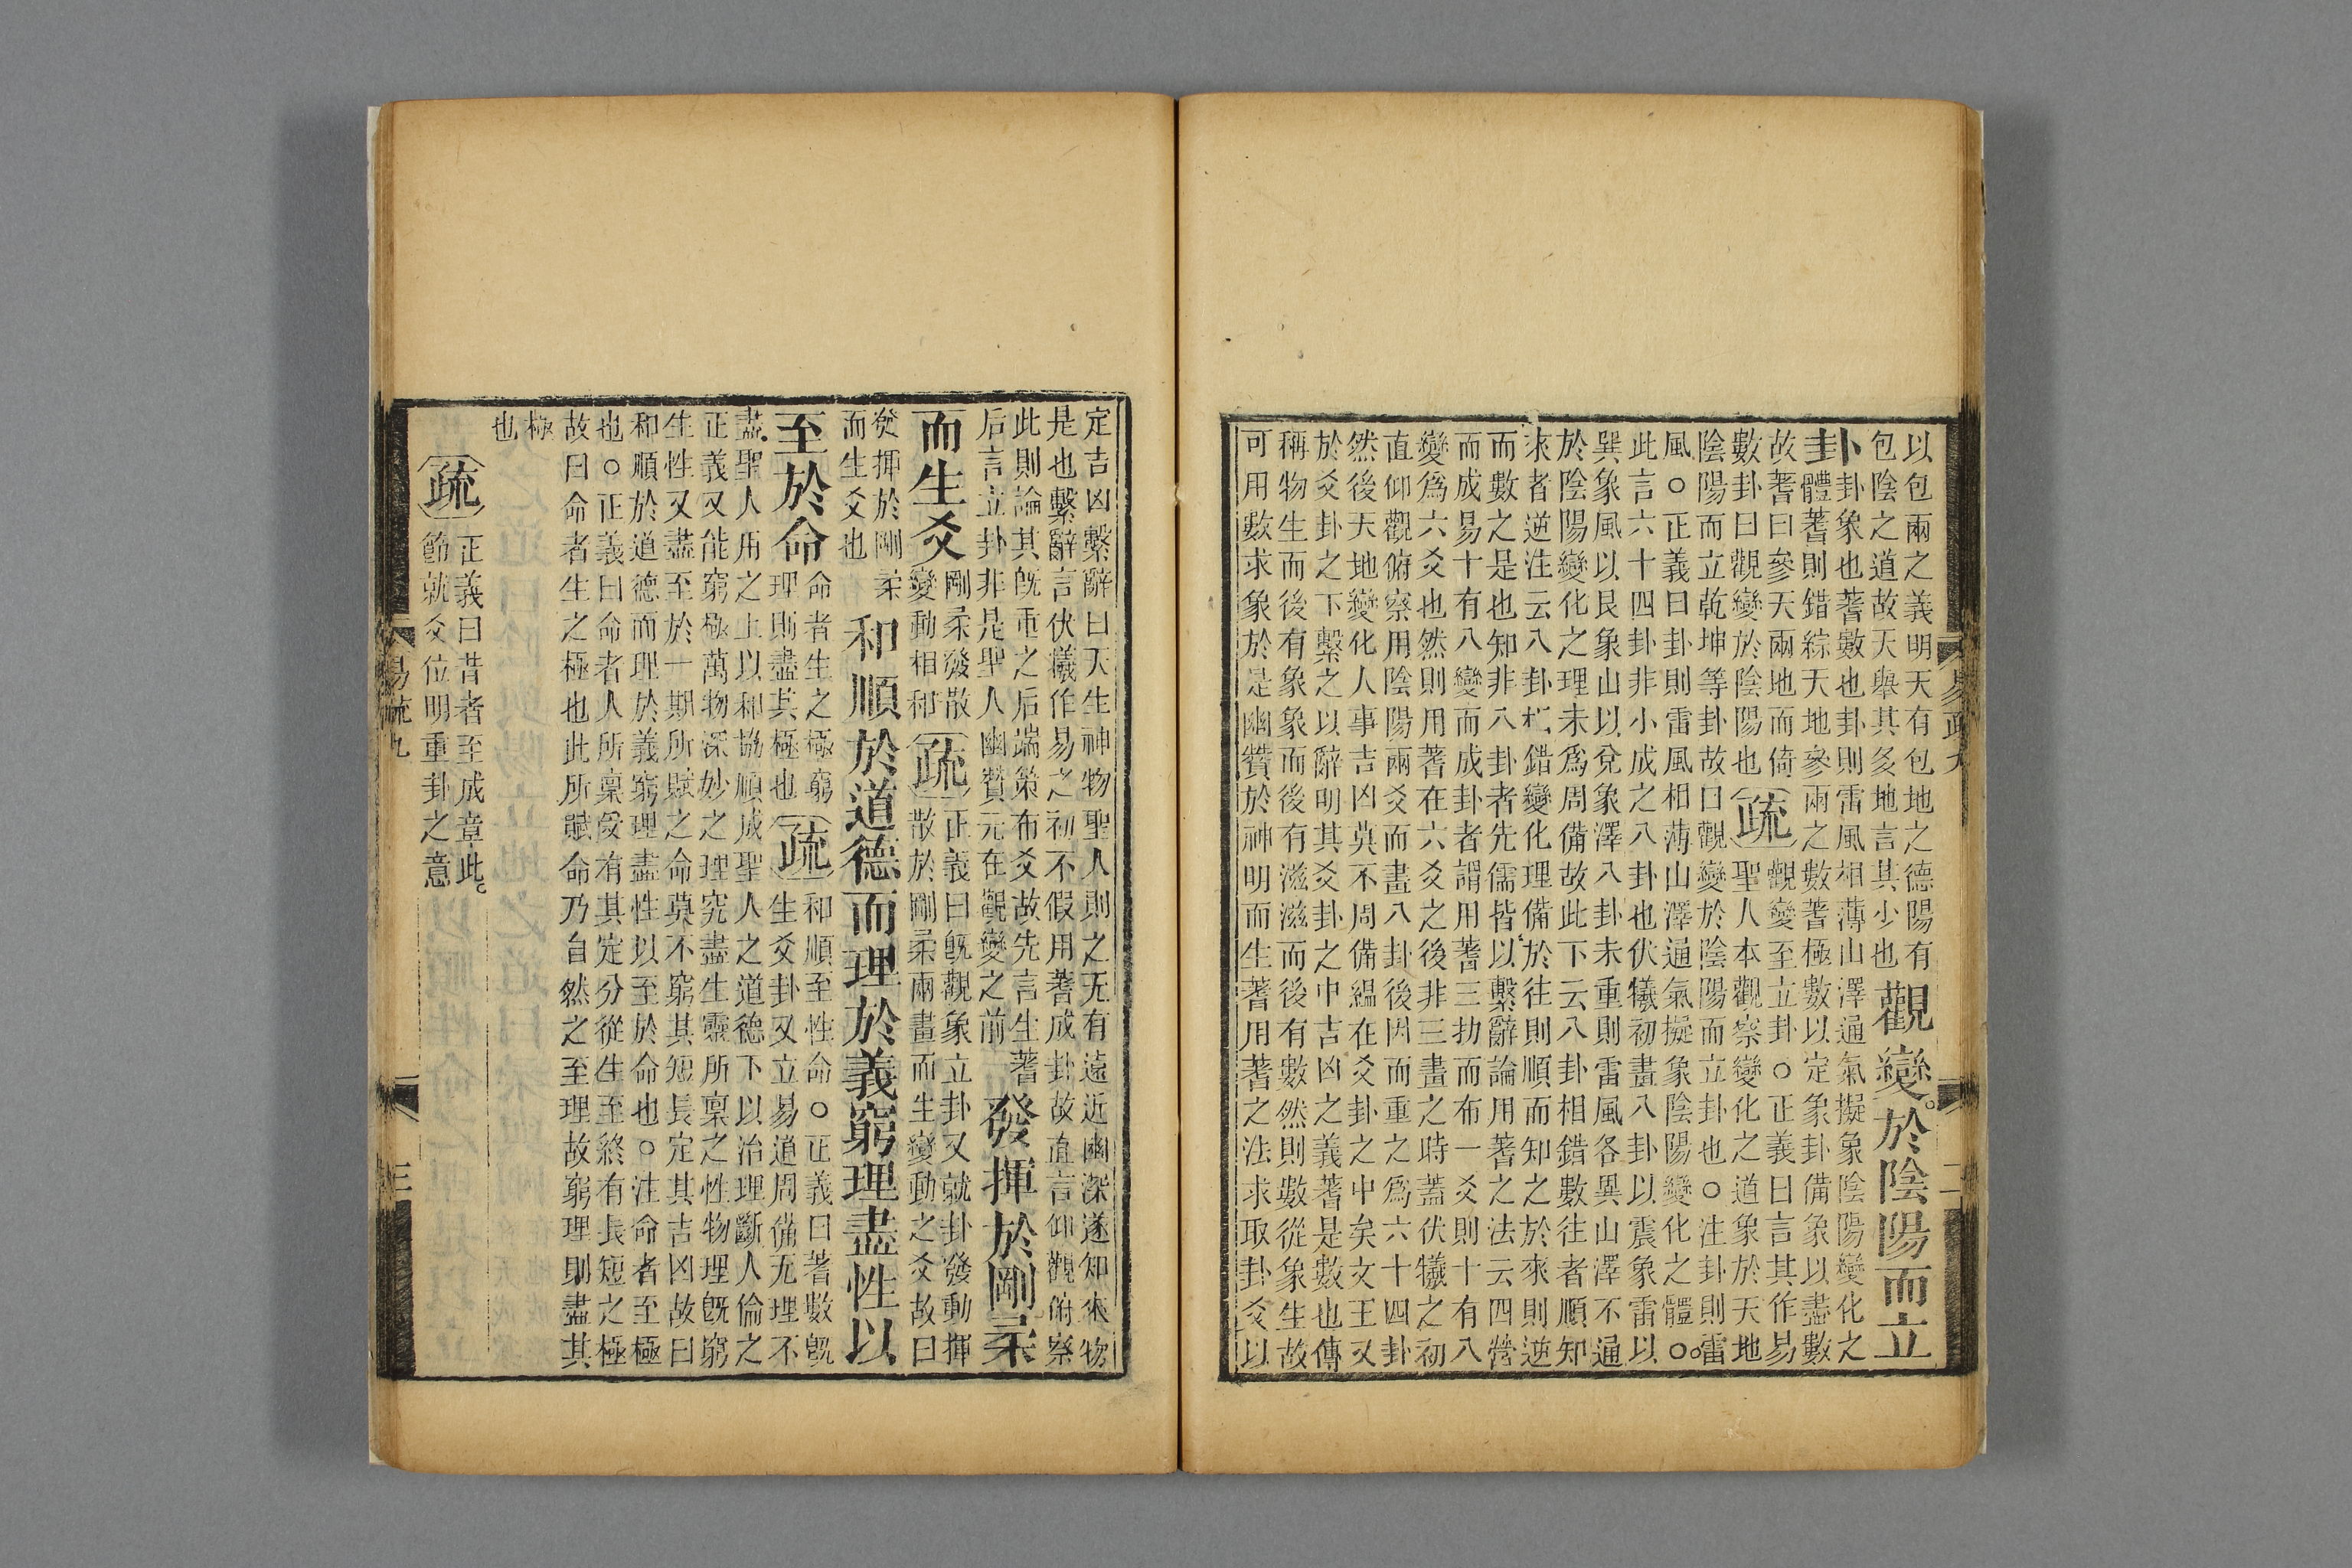 以包兩之義明天有包地之德陽有
包陰之道故天舉其多地言其少也
觀變於陰陽而立
卦
卦象也蓍數也卦則雷風相薄山澤通氣擬象陰陽變化之
體蓍則錯綜天地參兩之數蓍極數以定象卦備象以盡數
故蓍曰參天兩地而倚
數卦曰觀變於陰陽也
疏
觀變至立卦○正義曰言其作易
聖人本觀察變化之道象於天地
陰陽而立乾坤等卦故曰觀變於陰陽而立卦也○注卦則雷
風○正義曰卦則雷風相薄山澤通氣擬象陰陽變化之體○
此言六十四卦非小成之八卦也伏犧初畫八卦以震象雷以
巽象風以艮象山以兌象澤八卦未重則雷風各異山澤不通
於陰陽變化之理未爲周備故此下云八卦相錯數往者順知
來者逆注云八卦相錯變化理備於往則順而知之於來則逆
而數之是也知非八卦者先儒皆以繫辭論用蓍之法云四營
而成易十有八變而成卦者謂用蓍三扐而布一爻則十有八
變爲六爻也然則用蓍在六爻之後非三畫之時蓋伏犧之初
直仰觀俯察用陰陽兩爻而畫八卦後因而重之爲六十四卦
然後天地變化人事吉凶莫不周備縕在爻卦之中矣文王又
於爻卦之下繫之以辭明其爻卦之中吉凶之義蓍是數也傳
稱物生而後有象象而後有滋滋而後有數然則數從象生故
可用數求象於是幽贊於神明而生蓍用蓍之法求取卦爻以
定吉凶繫辭曰天生神物聖人則之无有遠近幽深遂知來物
是也繫辭言伏犧作易之初不假用蓍成卦故直言仰觀俯察
此則論其既重之后端策布爻故先言生蓍
后言立卦非是聖人幽贊元在觀變之前
發揮於剛柔
而生爻
剛柔發散
變動相和
疏
正義曰既觀象立卦又就卦發動揮
散於剛柔兩畫而生變動之爻故曰
發揮於剛柔
而生爻也
和順於道德而理於義窮理盡性以
至於命
命者生之極窮
理則盡其極也
疏
和順至性命○正義曰蓍數既
生爻卦又立易道周備无理不
盡聖人用之上以和協順成聖人之道德下以治理斷人倫之
正義又能窮極萬物深妙之理究盡生靈所稟之性物理既窮
生性又盡至於一期所賦之命莫不窮其短長定其吉凶故曰
和順於道德而理於義窮理盡性以至於命也○注命者至極
也○正義曰命者人所稟受有其定分從生至終有長短之極
故曰命者生之極也此所賦命乃自然之至理故窮理則盡其
極
也
疏
正義曰昔者至成章此
節就爻位明重卦之意
易疏九
三